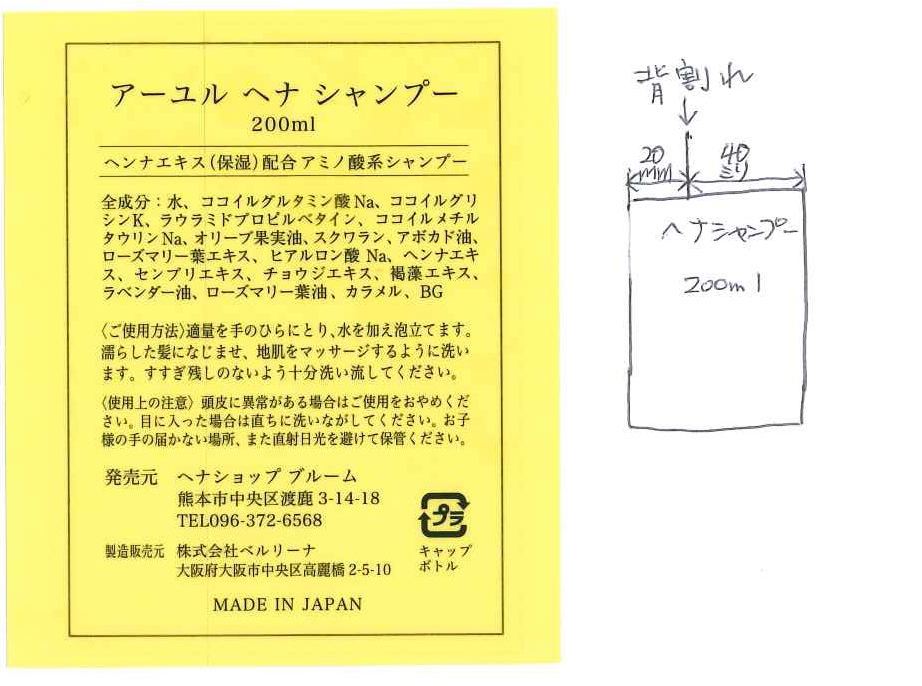 アーユル ヘナ シャンプー
200ml
ヘンナエキス(保湿)配合 アミノ酸系シャンプー
全成分：水、ココイルグルタミン酸Na、ココイルグリ
シンK、ラウラミドプロピルベタイン、ココイルメチル
タウリンNa、オリーブ果実油、スクワラン、アボカド油、
ローズマリー葉エキス、ヒアルロン酸 Na、ヘンナエキ
ス、センブリエキス、チョウジエキス、褐藻エキス、
ラベンダー油、ローズマリー葉油、カラメル、BG
〈ご使用方法〉適量を手のひらにとり、水を加え泡立てます。
濡らした髪になじませ、地肌をマッサージするように洗い
ます。すすぎ残しのないよう十分洗い流してください。
〈使用上の注意〉頭皮に異常がある場合はご使用をおやめくだ
さい。目に入った場合は直ちに洗いながしてください。お子
様の手の届かない場所、また直射日光を避けて保管ください。
発売元 ヘナショップ ブルーム
熊本市中央区渡鹿 3-14-18
TEL096-372-6568
製造販売元 株式会社ベルリーナ
大阪府大阪市中央区高麗橋 2-5-10
プラ
キャップ
ボトル
MADE IN JAPAN
背割れ
20
mm
40
ミリ
ヘナシャンプー
200ml